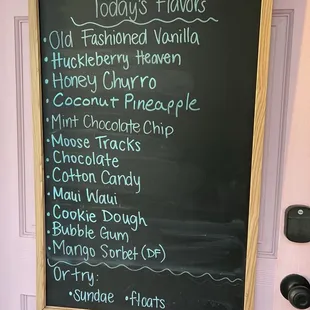 Today's Flavors
• Old Fashioned Vanilla
• Huckleberry Heaven
• Honey Churro
• Coconut Pineapple
• Mint Chocolate Chip
• Moose Tracks
• Chocolate
• Cotton Candy
• Maui Waui
• Cookie Dough
• Bubble Gum
• Mango Sorbet (DF)
Or try:
• sundae • floats